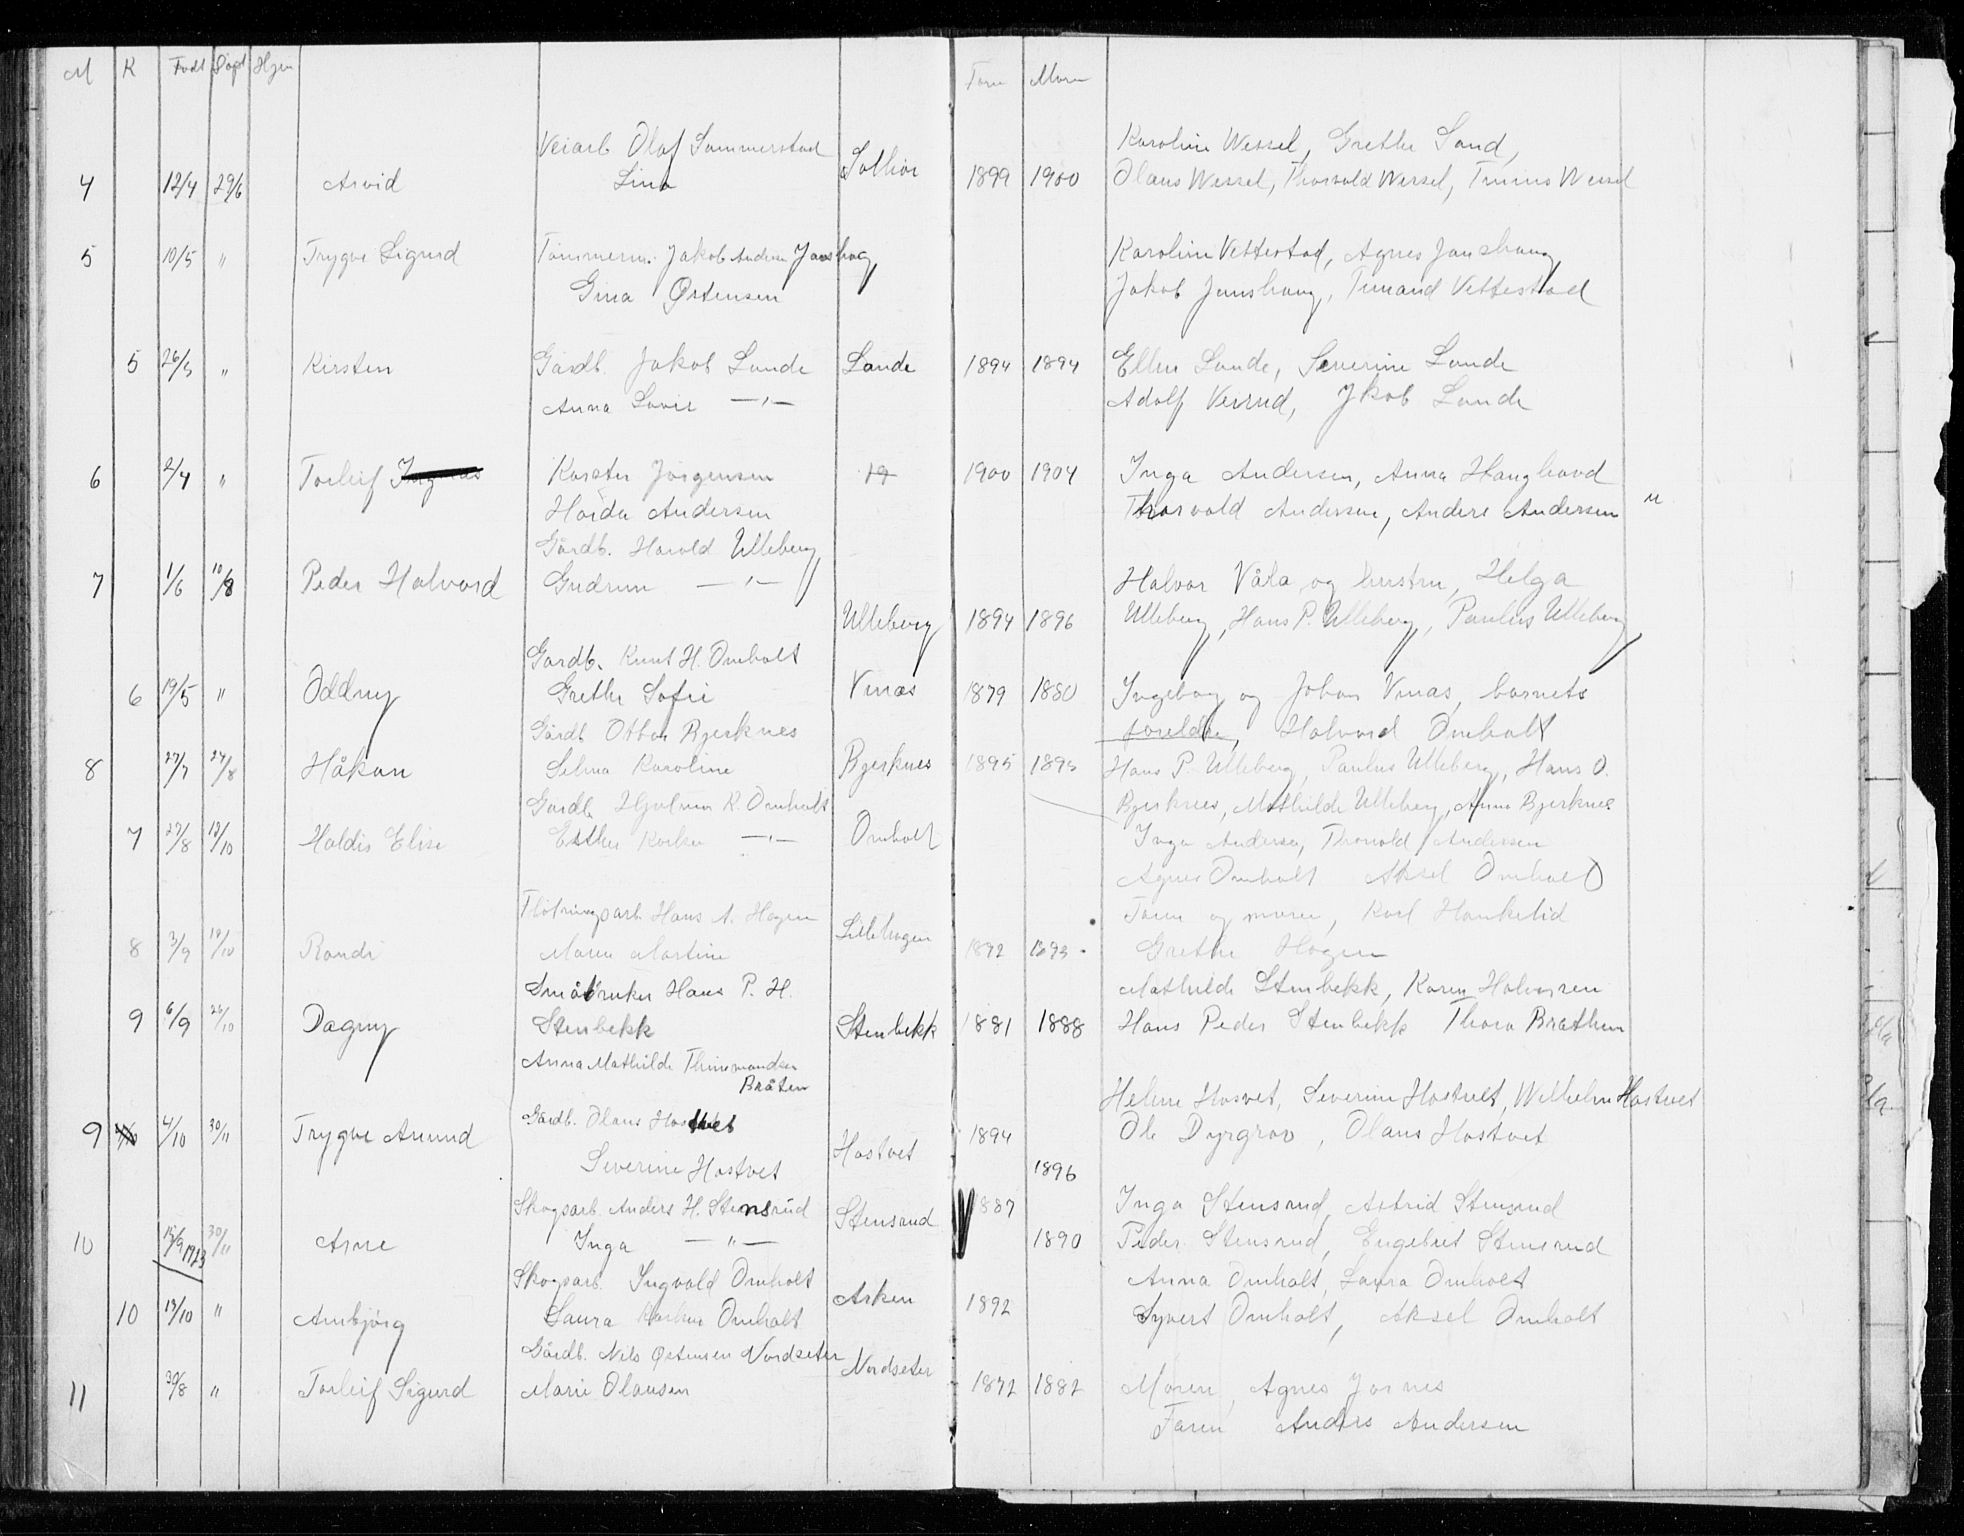 M K Født Døpt Hjem Faren Moren
Veiarb Olaf Sommerstad Karoline Wessel, Grethe Sand,
4 12/4 29/6 Arvid Lina 1899 1900 Olaus Wessel, Thorvald Wessel, Wessel
5 10/5 " Trygve Sigurd Tømmerm. Jakob Andersen Janshaug Karoline Vettestad, Agnes Janshaug
Gina Østensen Jakob Janshaug, Vettestad
5 26/5 " Kirsten Gårdb. Jakob Lunde Lande 1894 1894 Ellen Lunde, Severine Lunde
Anna Lovise —"— Adolf Verrud, Jakob Lunde
6 2/4 " Torleif Karsten Jørgensen 1900 1904 Inga Andersen, Anna Haughovd
Andersen Thorvald Andersen, Anders Andersen
Gårdb. Harald Ulleberg
7 1/6 10/8 Peder Halvard Gudrun —"— Halvor Våla og hustru, Helga
Ulleberg 1894 1896 Ulleberg, Hans P. Ulleberg, Paulus Ulleberg
Gårdb. Knut H. Omholt
6 19/5 " Oddny Grethe Sofie Vinæs 1879 1880 Ingeborg og Johan Vinæs, barnets
Gårdb Ottar Bjerknes foreldre, Halvard Omholt
8 27/7 24/8 Håkon Selma Karoline Bjerknes 1895 1895 Hans P. Ulleberg, Paulus Ulleberg, Hans O.
Gårdb. Hjalmar K. Omholt Bjerknes, Mathilde Ulleberg, Anna Bjerknes
7 27/8 12/10 Haldis Elise Esther —"— Omholt Inga Andersen, Thorvald Andersen
Agnes Omholt Aksel Omholt
Fløtningsarb. Hans A. Hagen Faren og moren, Karl Hankelid
8 3/9 12/10 Randi Maren Martine Lillehagen 1892 1893 Grethe Hagen
Småbruker Hans P. H. Mathilde Stenbekk, Karen Halvorsen
9 6/9 26/10 Dagny Stenbekk Stenbekk 1881 1888 Hans Peder Stenbekk Thora Bråthen
Anna Mathilde
Bråten
Helene Hostvet, Severine Hostvet, Wilhelm Hostvet
Gårdb. Olaus Hostvet
9 4/10 30/11 Trygve Amund 1894 Ole Dyrgrav, Olaus Hostvet
Severine Hostvet Hostvet 1896
Skogsarb. Anders H. Stensrud Stensrud 1887 Inga Stensrud, Astrid Stensrud
10 15/9 1923 30/11 Arne Inga —"— 1890 Peder Stensrud, Engebret Stensrud
Skogsarb. Ingvald Omholt Anna Omholt, Laura Omholt
10 19/10 " Ambjørg Laura Omholt Asken 1892 Syvert Omholt, Aksel Omholt
Gårdb. Nils Østensen Nordseter
11 30/8 " Torleif Sigurd Marie Olausen Nordseter 1872 1882 Moren, Agnes Jornes
Faren Anders Andersen